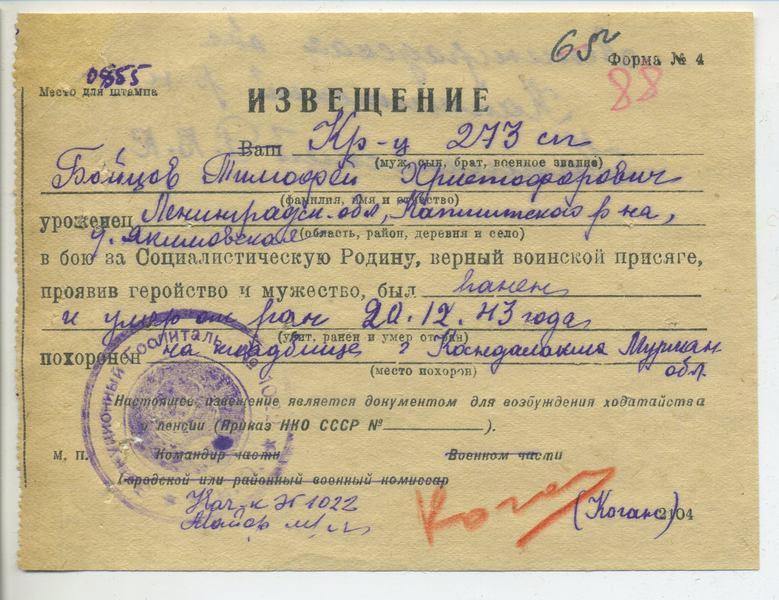 65
Форма № 4
88
0855
Место для штампа
ИЗВЕЩЕНИЕ
Ваш Кр-ц 273 сп
(муж, сын, брат, военное звание)
Бойцов Тимофей Христофорович
(фамилия, имя и отчество)
уроженец Ленинградск. обл, Капшитского р-на,
д. Якимовская (область, район, деревня и село)
в бою за Социалистическую Родину, верный воинской присяге,
проявив геройство и мужество, был ранен
и умер от ран 20.12.43 года
(убит, ранен и умер от ран)
похоронен на кладбище г Кандалакша Мурман
обл.
(место похорон)
Настоящее извещение является документом для возбуждения ходатайства
о пенсии (Приказ НКО СССР № ).
М. П. Командир части Военком части
Городской или районный военный комиссар
Нач-к ЭГ 1022
Майор м/с
(Коган) 2104
Эвакуационный госпиталь